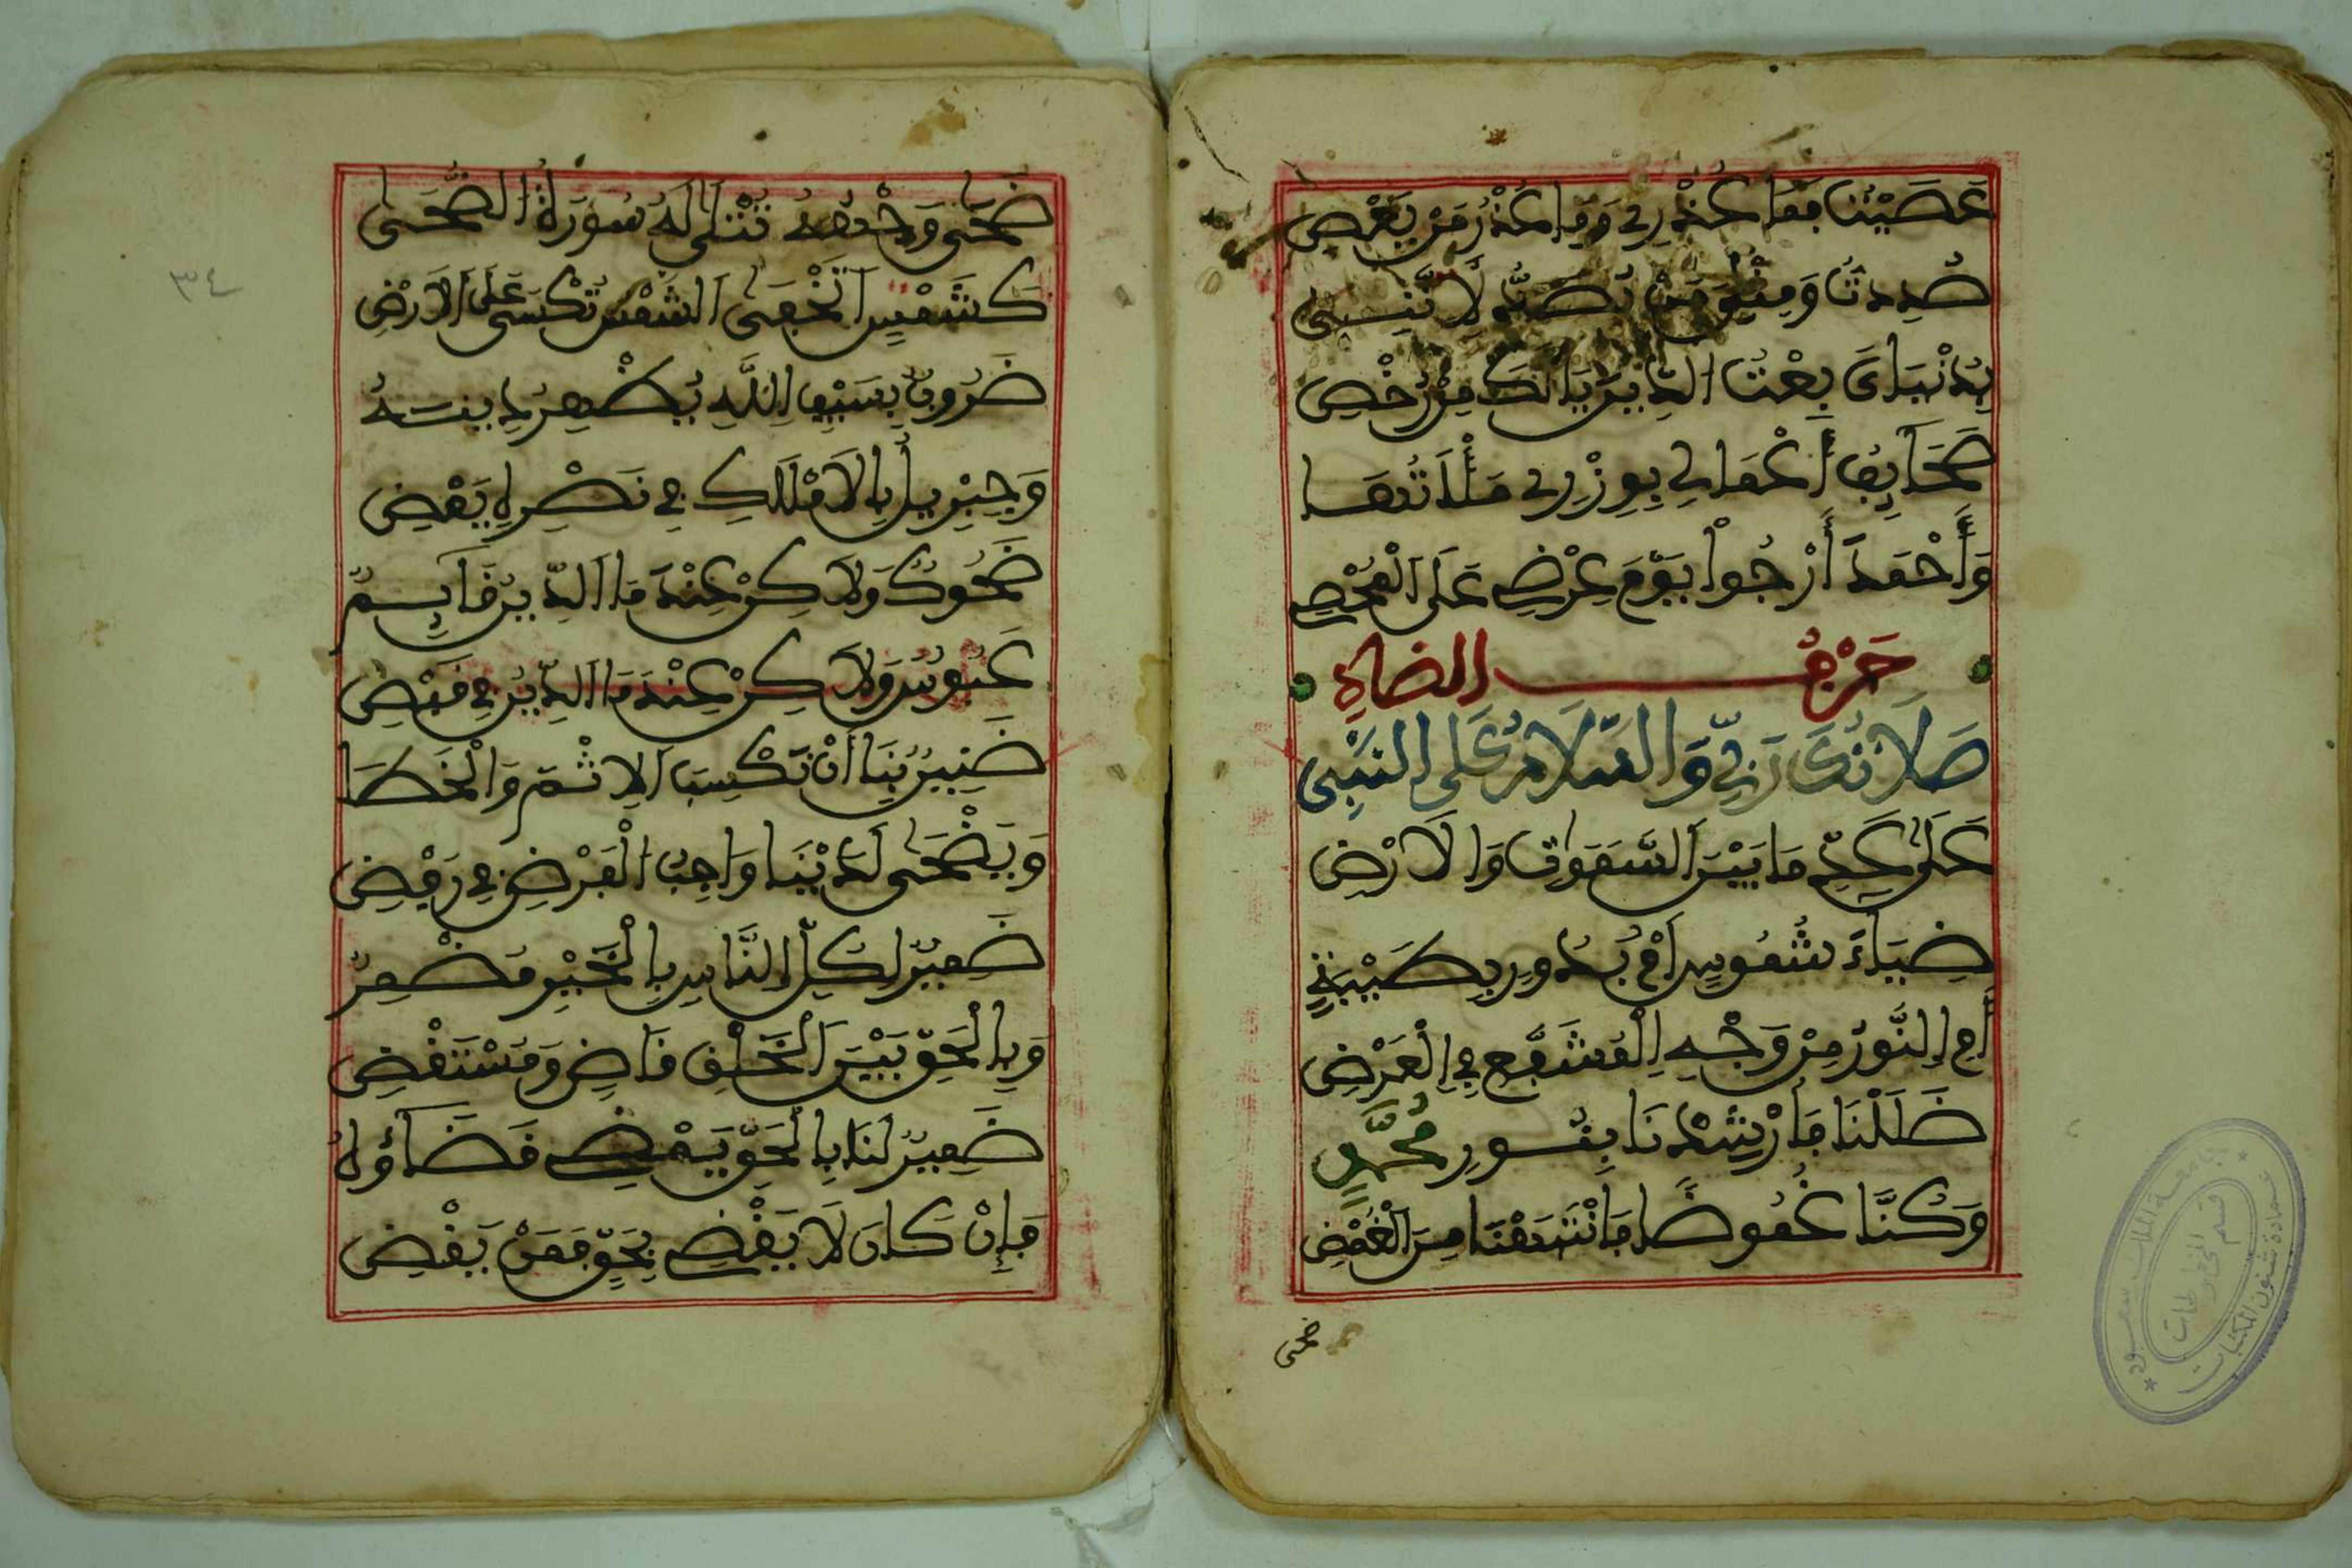 عَصَيْتُ فَمَا عُذْرِي وَمَا عُذْرُ مَنْ يَعْصِي
صُدِدتُ وَمِثْلِي مَنْ يُصَدُّ لِأَنَّنِي
بِدُنْيَايَ بِعْتُ الدِّينَ يَا لَكَ مِنْ رُخْصِ
صَحَائِفُ أَعْمَالِي بِوِزْرِي مَلَأْتُهَا
وَأَحْمَدَ أَرْجُوا يَوْمَ عَرْضِي عَلَى الْمُحْصِي
حَرْفُ الضَّادِ
صَلَاتُكَ رَبِّي وَالسَّلَامُ عَلَى النَّبِي
عَلَى عَدِّ مَا بَيْنَ السَّمَوَاتِ وَالْأَرْضِ
ضِيَاءُ شُمُوسٍ أَمْ بُدُورٍ بِطَيْبَةٍ
أَمِ النُّورُ مِنْ وَجْهِ الْمُشَفَّعِ فِي الْعَرْضِ
ضَلَلْنَا فَأَرْشَدْنَا بِنُورِ مُحَمَّدٍ
وَكُنَّا غُمُوضًا فَانْتَبَهْنَا مِنَ الْغُمْضِ
ضحى
٣٤
ضُحَى وَجْهِهِ تُتْلَى لَهُ سُورَةُ الضُّحَى
كَشَمْسِ الضُّحَى الشَّمْسُ تُكْسَى عَلَى الْأَرْضِ
ضَرُوبٌ بِسَيْفِ اللَّهِ يُظْهِرُ دِينَهُ
وَجِبْرِيلُ بِالْأَمْلَاكِ فِي نَصْرِهِ يَمْضِي
ضَحُوكٌ وَلَاكِنْ عِنْدَ مَا الدِّينُ قَائِمٌ
عَبُوسٌ وَلَاكِنْ عِنْدَ مَا الدِّينُ فِي قَبْضِ
ضَنِينٌ بِنَا أَنْ نَكْسِبَ الْإِثْمَ وَالْخَطَا
وَيَضْحَى لَدَيْنَا وَاجِبُ الْفَرْضِ فِي رَفْضِ
ضَمِيرٌ لِكُلِّ النَّاسِ بِالْخَيْرِ مُضْمِرٌ
وَبِالْحَقِّ بَيْنَ الْخَلْقِ قَاضٍ وَمُسْتَقْضِ
ضَمِينٌ لَنَا بِالْحَقِّ يَمْضِي قَضَاؤُهُ
فَإِنْ كَانَ لَا يَقْضِي بِحَقٍّ فَمَنْ يَقْضِي
جامعة الملك سعود
عمادة شئون المكتبات
قسم المخطوطات